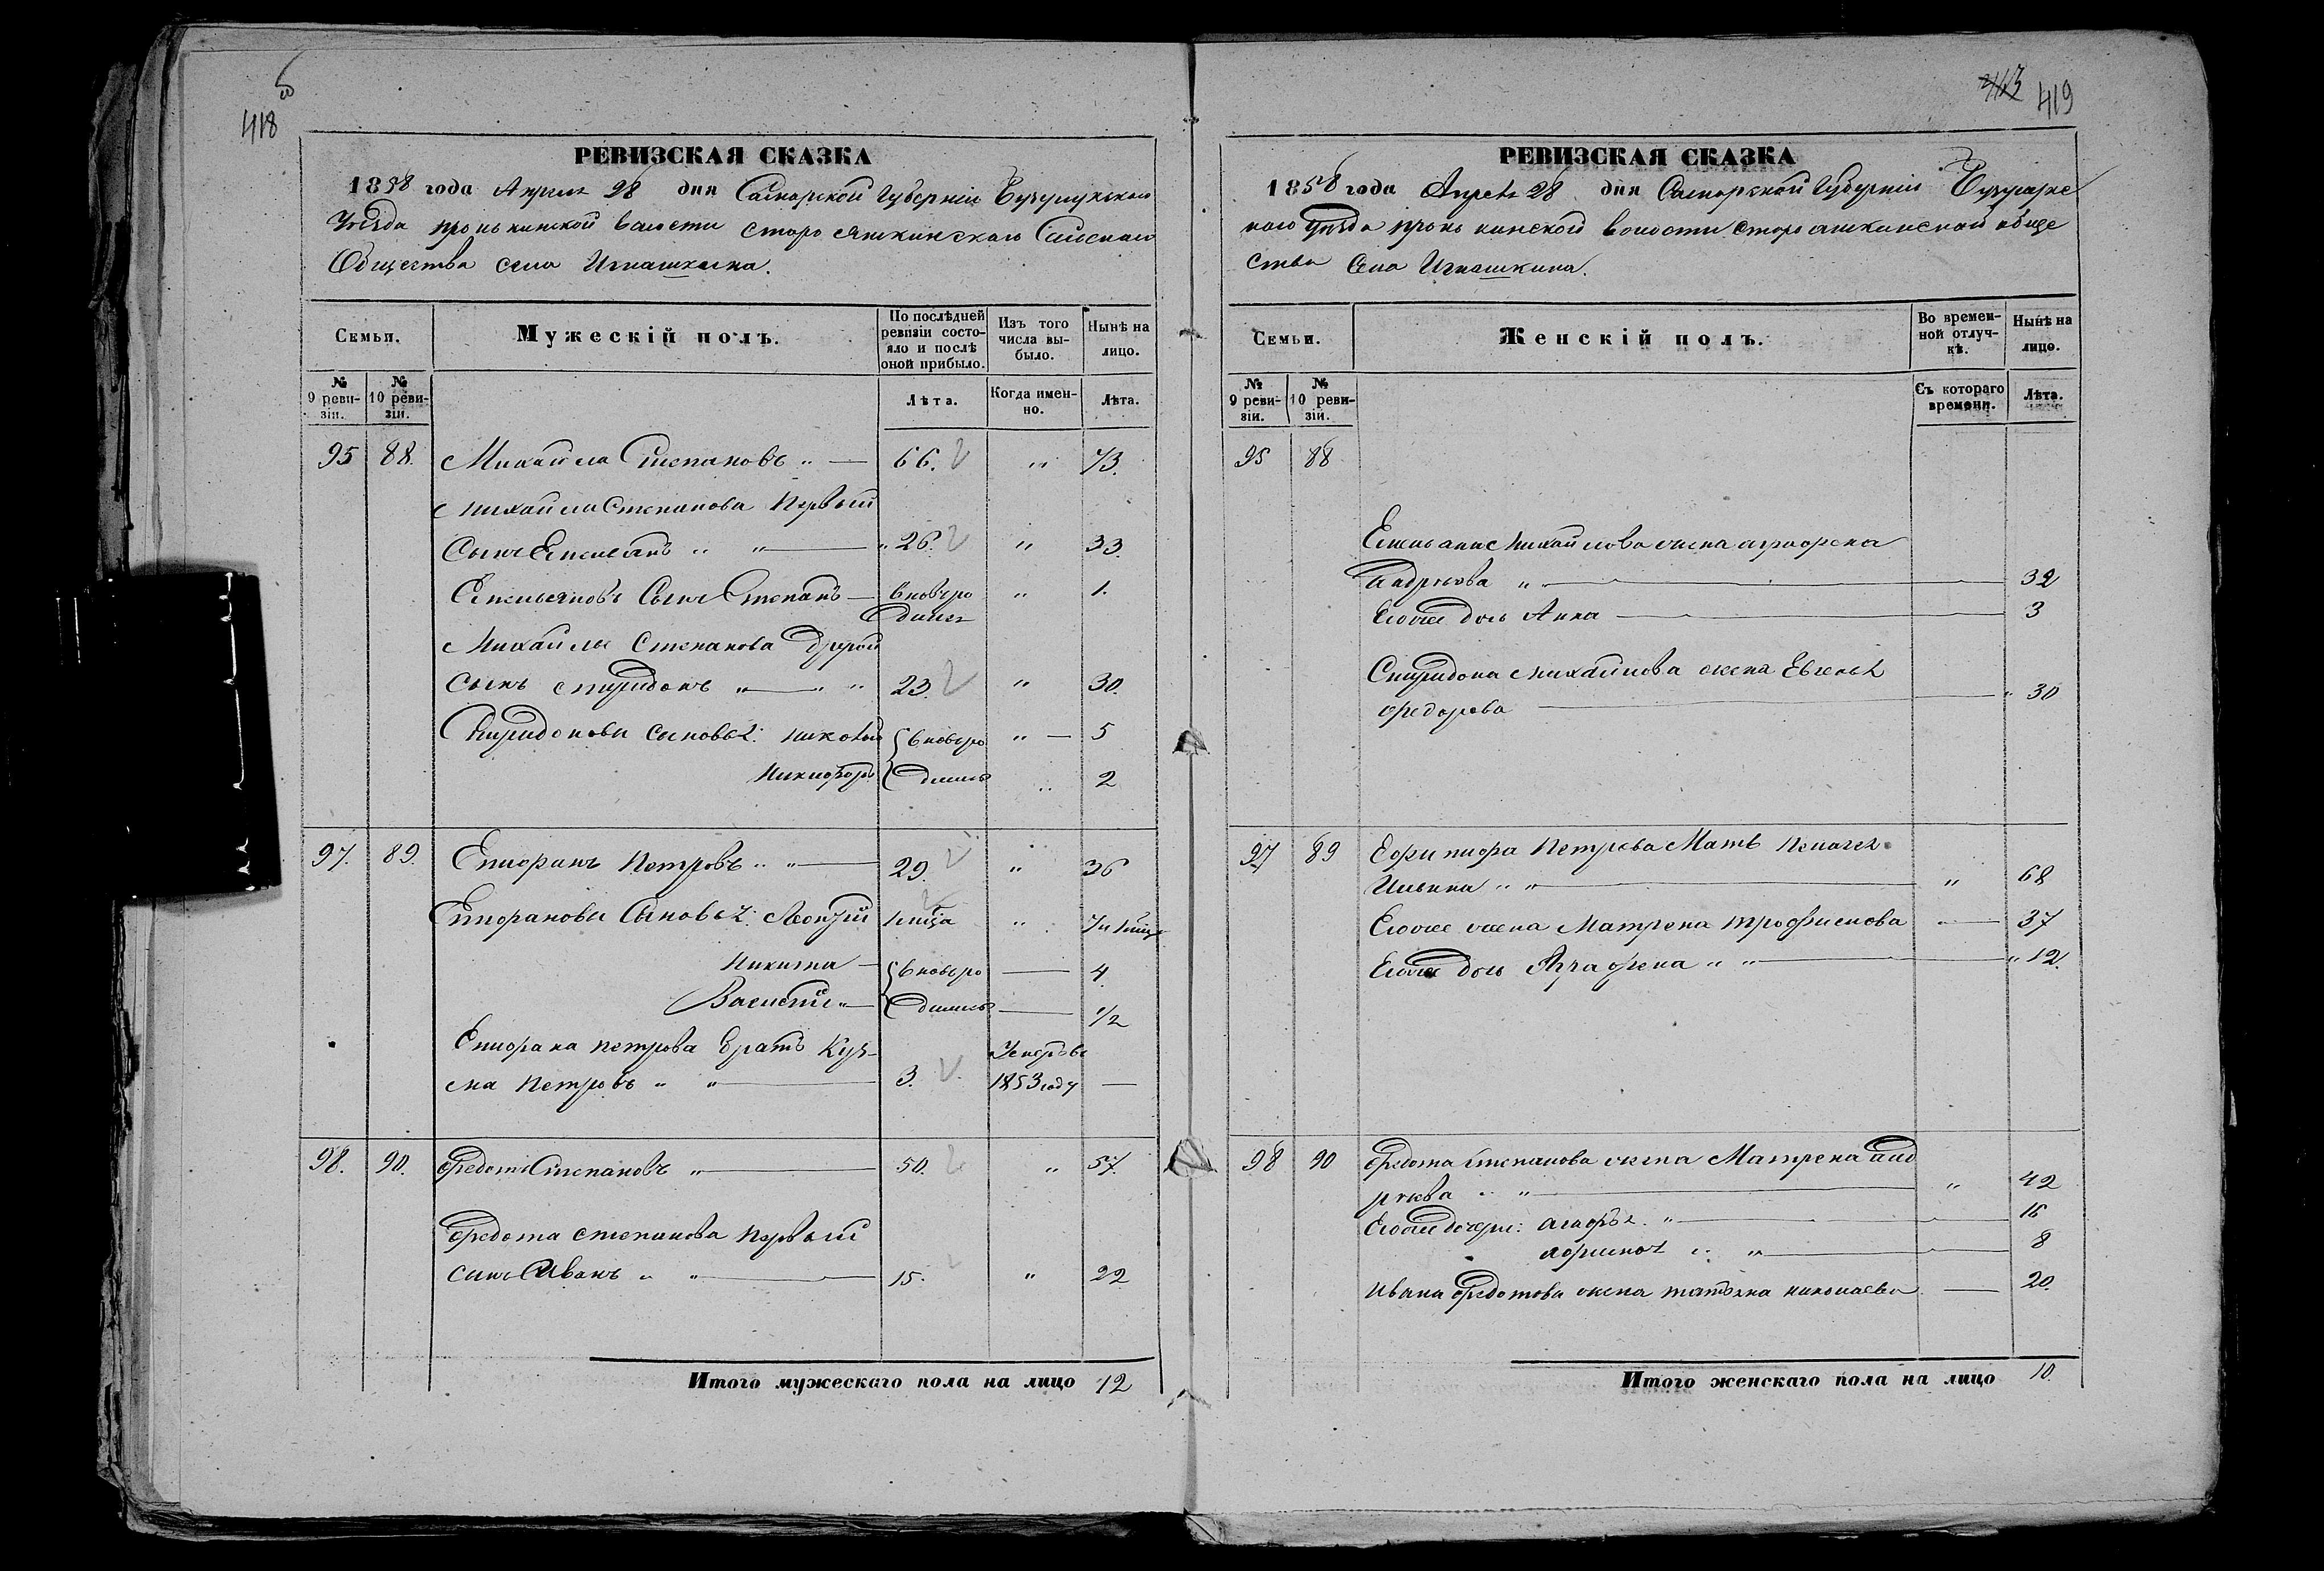 418
РЕВИЗСКАЯ СКАЗКА
1858 года Апреля 28 дня Самарской Губерніи Бузулукскаго
Уѣзда пронькинской волости Старо Яшкинскаго Сельскаго
Общества села Игнашкина.
Семьи.
Мужескій полъ.
По послѣдней ревизіи состояло и послѣ оной прибыло.
Изъ того числа выбыло.
Нынѣ на лицо.
№ 9 ревизіи.
№ 10 ревизіи.
Лѣта.
Когда именно.
Лѣта.
95 88. Михайла Степановъ „ 66. „ 73.
Михайла Степанова Первый
Сынъ Емельянъ „ „ 26. „ 33.
Емельяновъ Сынъ Степанъ вновьро „ 1.
дился
Михайлы Степанова Другой
Сынъ спиридонъ „ „ „ 23. „ 30.
Спиридоновы сыновья: николай вновьро „ 5
Никифоръ дились „ 2
97. 89. Епифанъ Петровъ „ „ 29. „ 36
Епифановы Сыновья: Леонтий „
Никита вновьро 4.
Василий „ дились 1/2
Епифана петрова братъ Куз- Умеръ въ
ма Петровъ „ „ 3. 1853 году —
98. 90. Федотъ Степановъ „ 50. „ 57.
Федота степанова первый
сынъ Иванъ „ „ 15. „ 22
Итого мужескаго пола на лицо 12
413 419
РЕВИЗСКАЯ СКАЗКА
1858 года Апреля 28 дня Самарской Губерніи Бузулукс
каго Уѣзда пронькинской волости Старо яшкинскаго обще
ства Села Игнашкина.
Семьи.
Женскій полъ.
Во временной отлучкѣ.
Нынѣ на лицо.
№ 9 ревизіи.
№ 10 ревизіи.
Съ котораго времени.
Лѣта.
95 88
Емельяна Михайлова жена аграфена
андреева „ 32
Егоже дочь Анна 3
Спиридона михайлова жена Евгенья
федорова „ 30
97 89 Петрова Мать Пелагея
Ильина „ „ „ 68
Егоже жена Матрена трофимова 37
Егоже дочь Аграфена „ „ „ 12.
98 90 Федота степанова жена Матрена анд
реева „ „ „ 42
Егоже дочери: „ 16
„ „ 8
Ивана Федотова жена татьяна николаева 20.
Итого женскаго пола на лицо 10.